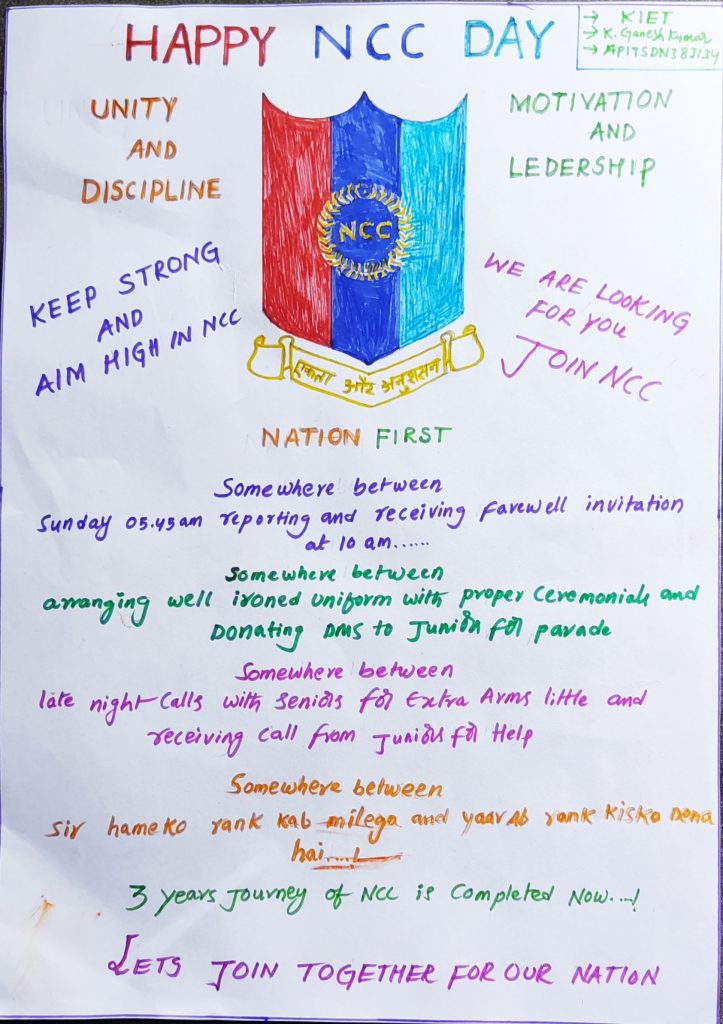 HAPPY NCC DAY
→ KIET
→ K. Ganesh Kumar
→ AP19SDN383134
UNITY
AND
DISCIPLINE
MOTIVATION
AND
LEDERSHIP
NCC
KEEP STRONG
AND
AIM HIGH IN NCC
WE ARE LOOKING
FOR YOU
JOIN NCC
एकता और अनुशसन
NATION FIRST
Somewhere between
Sunday 05.45am reporting and receiving farewell invitation
at 10 am......
Somewhere between
arranging well ironed uniform with proper Ceremonials and
Donating DMS to Junior for parade
Somewhere between
late night Calls with Seniors for Extra Arms little and
receiving call from Juniors for Help
Somewhere between
Sir hameko rank kab milega and yaar Ab rank kisko Dena
hai.....!
3 years Journey of NCC is Completed Now...!
LETS JOIN TOGETHER FOR OUR NATION